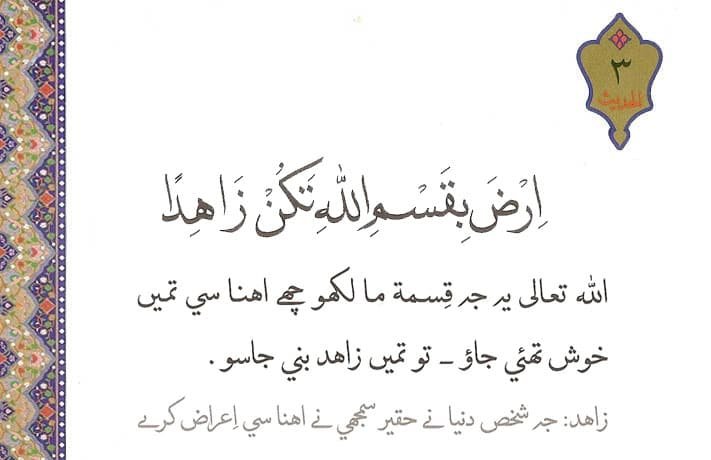 ٣
الحديث
اِرْضَ بِقَسْمِ اللهِ تَكُنْ زَاهِدًا
الله تعالى يه جه قِسمة ما لكهو چھے اهنا سي تميں
خوش تهئي جاؤ ــ تو تميں زاهد بني جاسو .
زاهد: جه شخص دنيا نے حقير سمجهي نے اهنا سي اِعراض كرے